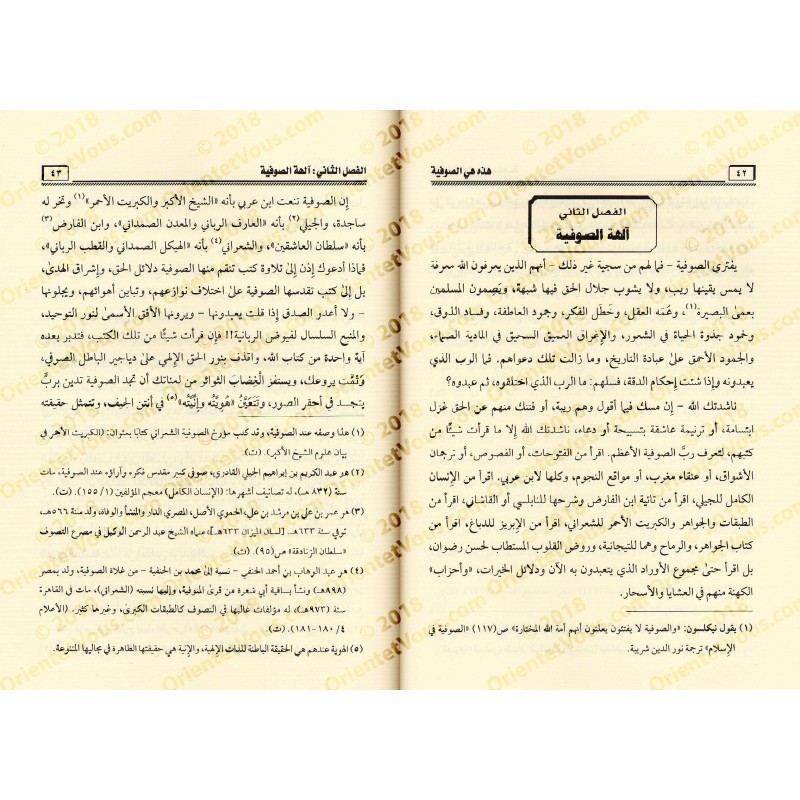 ٤٢
هذه هي الصوفية
الفصل الثاني
آلهة الصوفية
يفتري الصوفية – فما لهم من سجية غير ذلك – أنهم الذين يعرفون الله معرفة
لا يمس يقينها ريب، ولا يشوب جلال الحق فيها شبهة، ويَصِمون المسلمين
بعمى البصيرة(١)، وعَمَه العقل، وخَطَل الفكر، وجمود العاطفة، وفساد الذوق،
وخمود جذوة الحياة في الشعور، والإغراق العميق السحيق في المادية الصماء،
والجمود الأحمق على عبادة التاريخ، وما زالت تلك دعواهم. فما الرب الذي
يعبدونه وإذا شئت إحكام الدقة، فسلهم: ما الرب الذي اختلقوه، ثم عبدوه؟
ناشدتك الله – إن مسك فيما أقول وهم ريبة، أو فتنك منهم عن الحق غزل
ابتسامة، أو ترنيمة عاشقة بتسبيحة أو دعاء، ناشدتك الله إلا ما قرأت شيئًا من
كتبهم، لتعرف ربَّ الصوفية الأعظم. اقرأ من الفتوحات، أو الفصوص، أو ترجمان
الأشواق، أو عنقاء مغرب، أو مواقع النجوم، وكلها لابن عربي. أو اقرأ من الإنسان
الكامل للجيلي، أو اقرأ من تائية ابن الفارض وشرحها للنابلسي أو القاشاني، أو اقرأ من
الطبقات والجواهر والكبريت الأحمر للشعراني، اقرأ من الإبريز للدباغ، أو اقرأ من
كتاب الجواهر، والرماح وهما للتيجانية، وروض القلوب المستطاب لحسن رضوان،
بل اقرأ حتىٰ مجموع الأوراد الذي يتعبدون به الآن ودلائل الخيرات، «وأحزاب»
الكهنة منهم في العشايا والأسحار.
(١) يقول نيكلسون: «والصوفية لا يفتئون يعلنون أنهم أمة الله المختارة» ص(١١٧) «الصوفية في
الإسلام» ترجمة نور الدين شريبة.
الفصل الثاني: آلهة الصوفية
٤٣
إن الصوفية تنعت ابن عربي بأنه «الشيخ الأكبر والكبريت الأحمر»(١) وتخر له
ساجدة، والجيلي(٢) بأنه «العارف الرباني والمعدن الصمداني»، وابن الفارض(٣)
بأنه «سلطان العاشقين»، والشعراني(٤) بأنه «الهيكل الصمداني والقطب الرباني»،
فماذا أدعوك إذن إلىٰ تلاوة كتب تنقم منها الصوفية دلائل الحق، وإشراق الهدىٰ،
بل إلىٰ كتب تقدسها الصوفية علىٰ اختلاف نوازعهم، وتباين أهوائهم، ويجلونها
– ولا أعدر الصدق إذا قلت يعبدونها – ويرونها الأفق الأسمى لنور التوحيد،
والمنبع السلسال لفيوض الربانية!! فإن قرأت شيئًا من تلك الكتب، فتدبر بعده
آية واحدة من كتاب الله، واقذف بنور الحق الإلهي علىٰ دياجير الباطل الصوفي،
وثُمَّت يروعك، ويستفز الغِضَابَ الثوائر من لعناتك أن تجد الصوفية تدين بربٍّ
يتجسد في أحقر الصور، وتَتَعَيَّنُ «هُوِيَّتُه وإنِّيَّتُه»(٥) في أنتن الجيف، وتتمثل حقيقته
(١) هذا وصفه عند الصوفية، وقد كتب مؤرخ الصوفية الشعراني كتابًا بعنوان: (الكبريت الأحمر في
بيان علوم الشيخ الأكبر). (ت).
(٢) هو عبد الكريم بن إبراهيم الجيلي القادري، صوفي كبير مقدس فكره وآراؤه عند الصوفية، مات
سنة (٨٣٢ هـ)، له تصانيف أشهرها: (الإنسان الكامل) معجم المؤلفين (١/ ١٥٥). (ت).
(٣) هو عمر بن علي بن مرشد بن علي، الحموي الأصل، المصري الدار والمنشأ والوفاة، ولد سنة ٥٦٦هـ،
توفي سنة ٦٣٣هـ [لسان الميزان ٦٣٣هـ]، سماه الشيخ عبد الرحمن الوكيل في مصرع التصوف
«سلطان الزنادقة» ص(٩٥). (ت).
(٤) هو عبد الوهاب بن أحمد الحنفي – نسبة إلىٰ محمد بن الحنفية – من غلاة الصوفية، ولد بمصر
(٨٩٨هـ) ونشأ بساقية أبي شعرة من قرىٰ المنوفية، وإليها نسبته (الشعراني)، مات في القاهرة
سنة (٩٧٣هـ) له مؤلفات غالبها في التصوف كالطبقات الكبرىٰ، وغيرها كثير. (الأعلام
٤/ ١٨٠-١٨١). (ت).
(٥) الهوية عندهم هي الحقيقة الباطنة للذات الإلهية، والإنية هي حقيقتها الظاهرة في مجاليها المتنوعة.
© 2018
OrientetVous.com